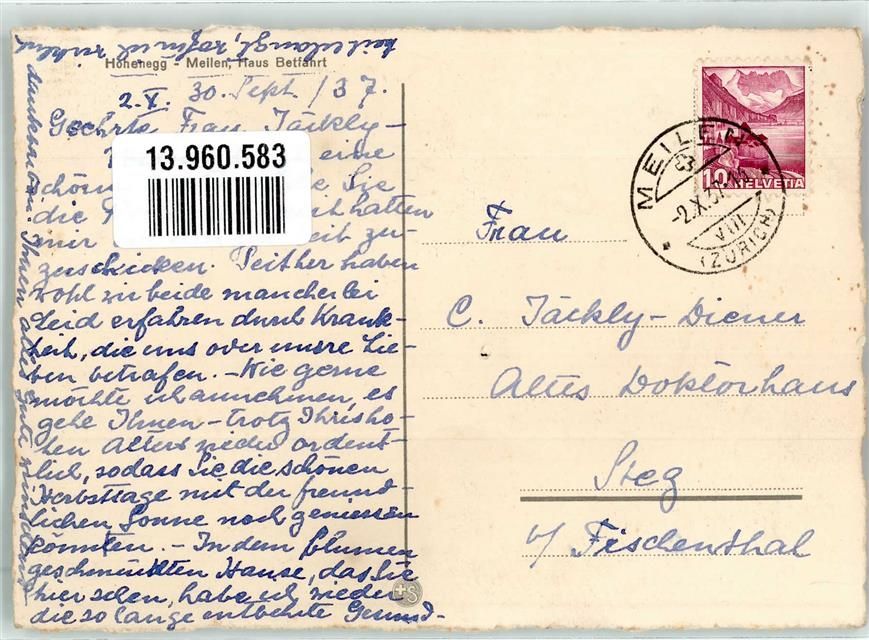 Hohenegg - Meilen, Haus Betfahrt
2.X. 30. Sept. / 37.
Geehrte Frau Jäckly-
eine
schön Sie
die hatten
mir zu-
zuschicken. Seither haben
wohl wir beide mancherlei
Leid erfahren durch Krank-
heit, die uns oder unsre Lie-
ben betrafen. - Wie gerne
möchte ich annehmen, es
gehe Ihnen - trotz Ihres ho-
hen Alters wieder ordent-
lich, sodass Sie die schönen
Herbsttage mit der freund-
lichen Sonne noch geniessen
könnten. - In dem blumen
geschmückten Hause, das Sie
hier sehen, habe ich wieder
die so lange entbehrte Gesund-
heit erlangt,
dankbar bin. Ihnen alles Gute wünschend
13.960.583
HELVETIA
10
MEILEN
-2.X.37
VIII
(ZÜRICH)
Frau
C. Jäckly-Diener
Altes Doktorhaus
Steg
b/ Fischenthal
+S